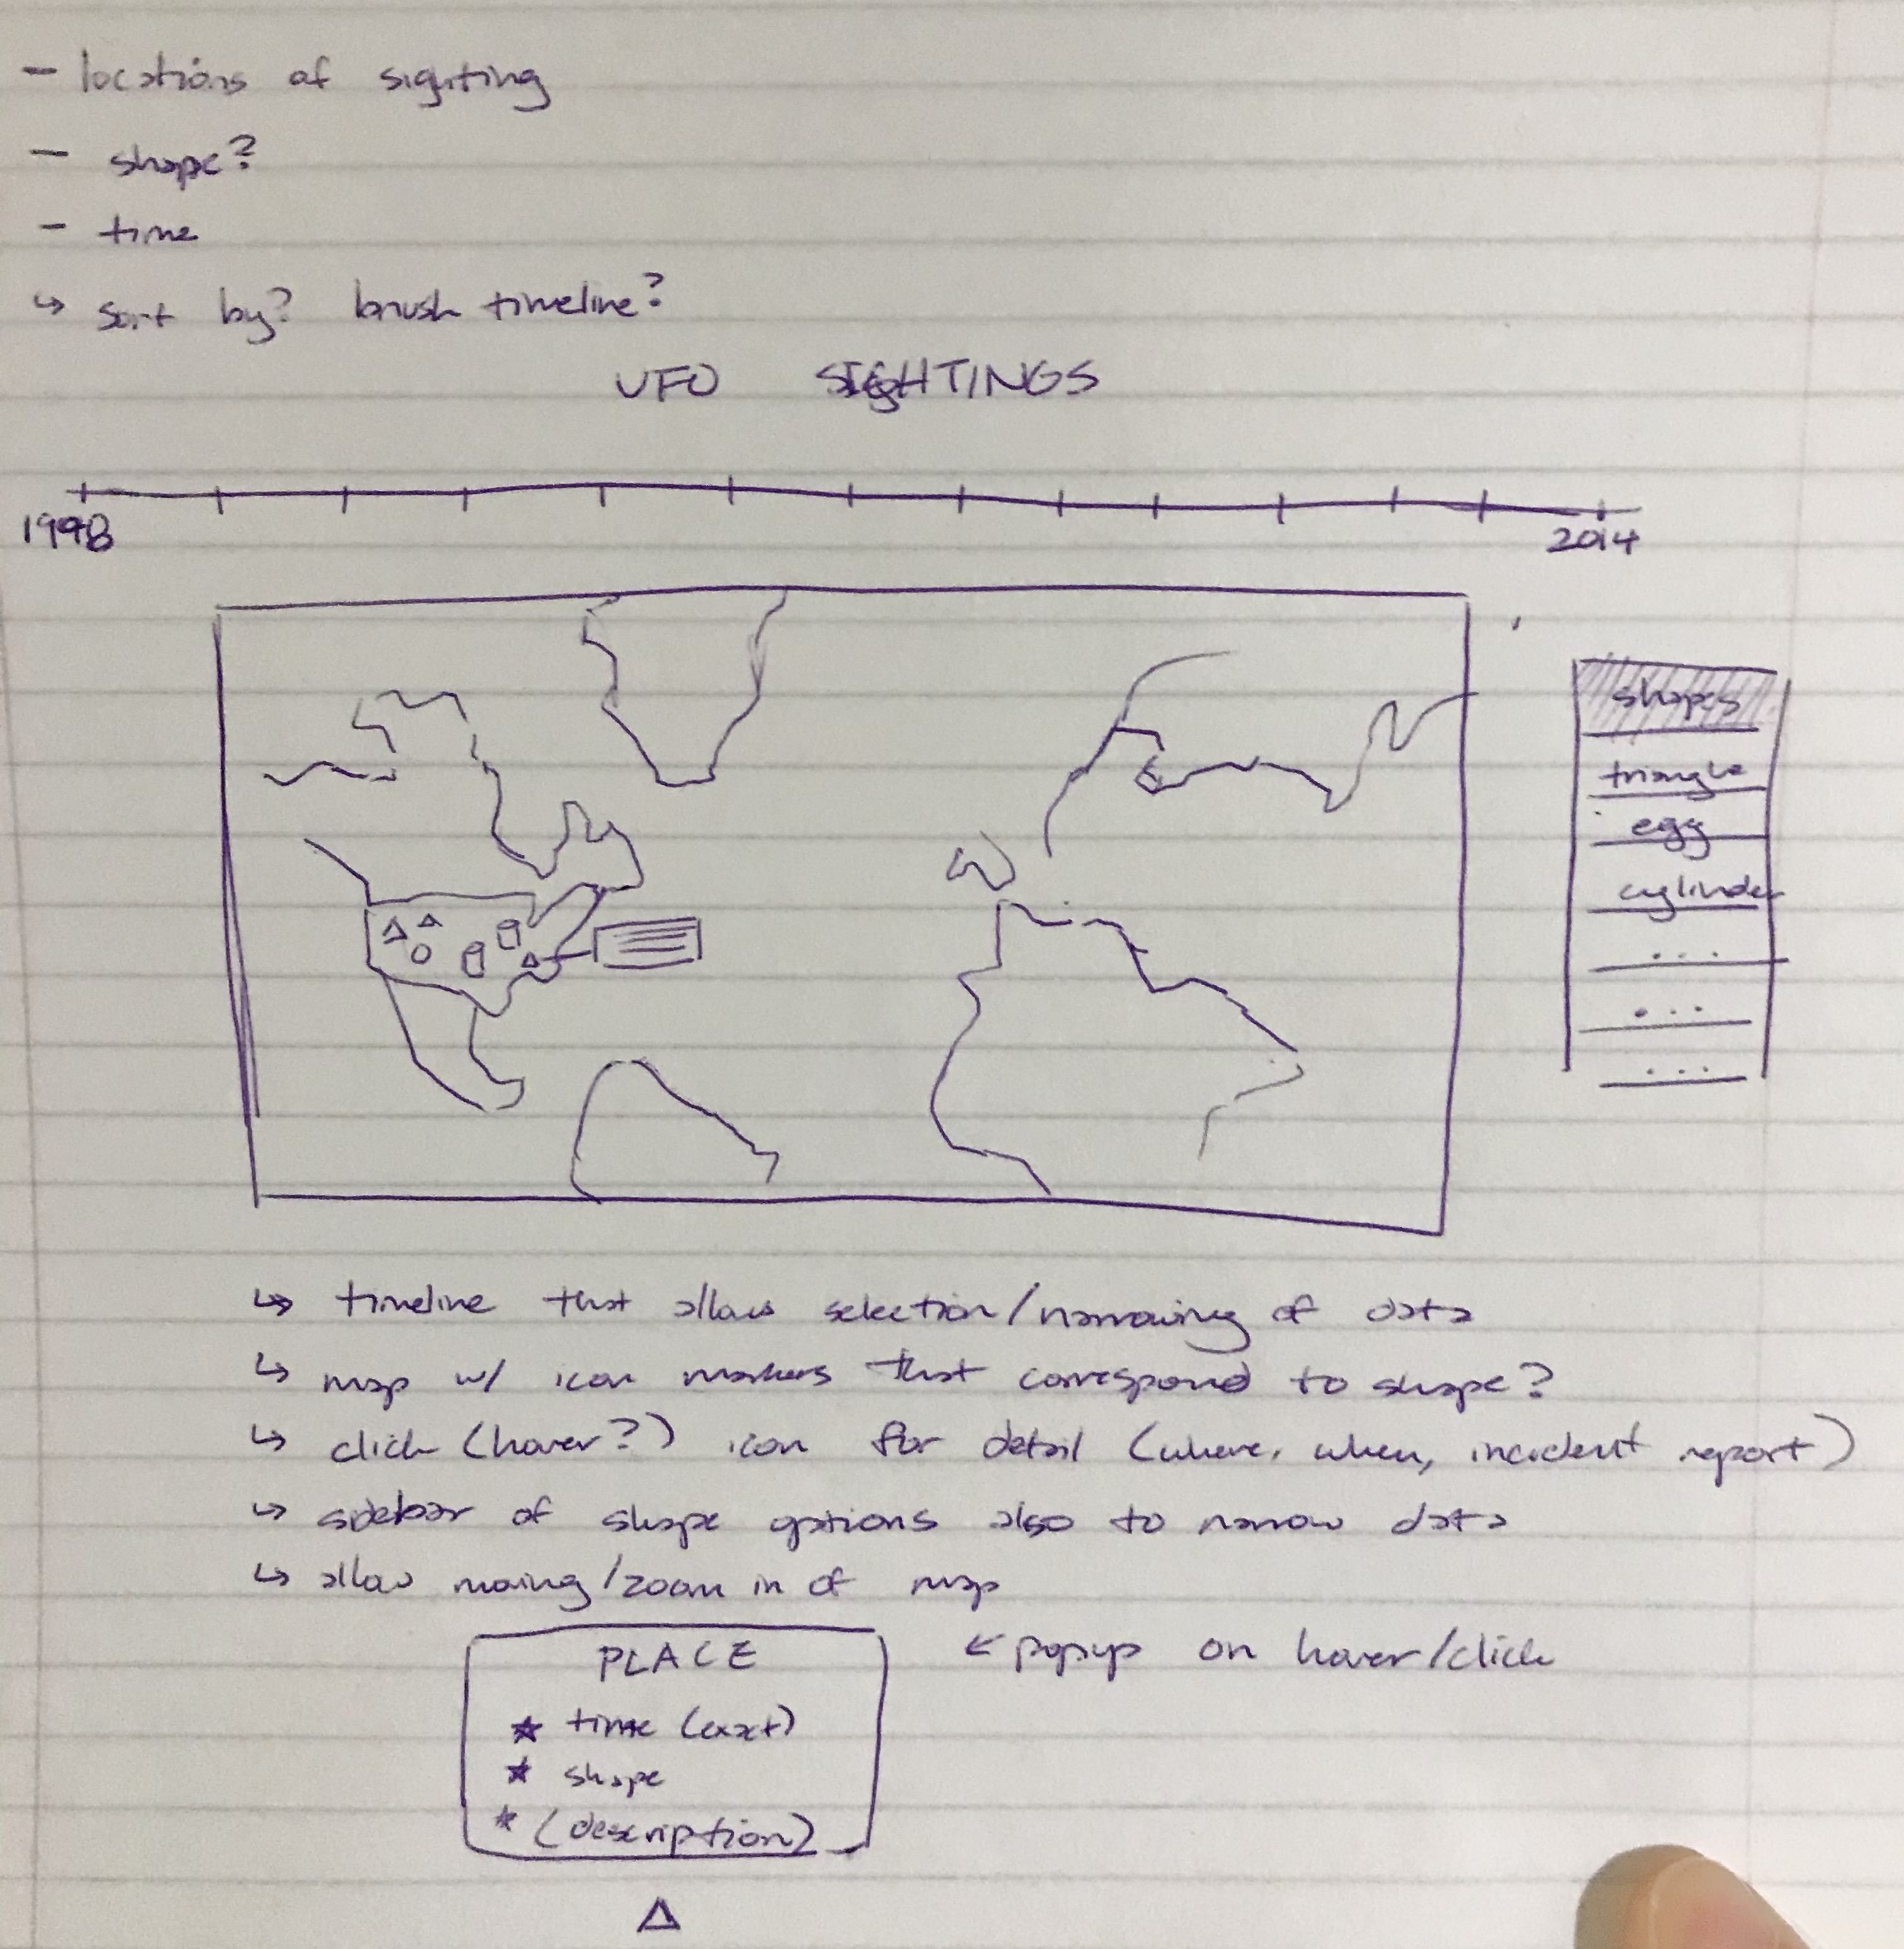 - locations of sighting
- shape?
- time
↳ sort by? brush timeline?
UFO SIGHTINGS
1998
2014
shapes
triangle
egg
cylinder
...
...
...
↳ timeline that allows selection/narrowing of data
↳ map w/ icon markers that correspond to shape?
↳ click (hover?) icon for detail (where, when, incident report)
↳ sidebar of shape options also to narrow data
↳ allow moving/zoom in of map
PLACE
← popup on hover/click
★ time (exact)
★ shape
* (description)